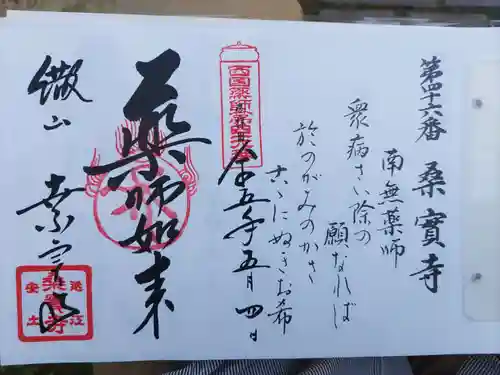 第四十六番 桑實寺
南無薬師
衆病さい除の
願なれば
於のがみのかさ
古ゝにぬきお希
西国薬師第四十六番
令五年五月四日
薬師如来
繖山 桑實寺
近江
桑實寺
安土